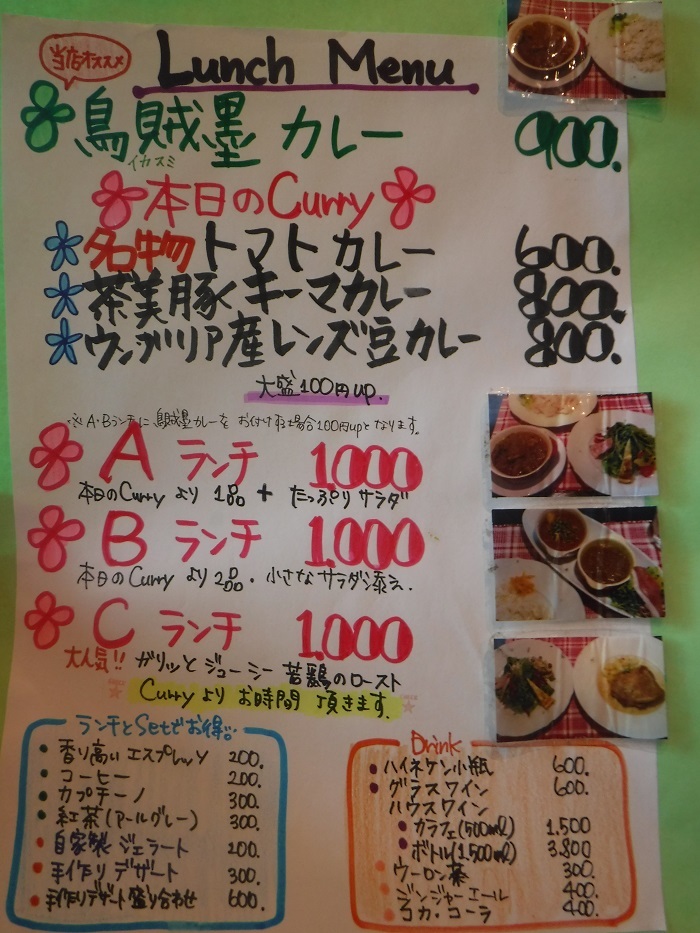 当店オススメ
Lunch Menu
烏賊墨 カレー 900.
イカスミ
本日のCurry
名物 トマトカレー 600.
茶美豚 キーマカレー 800.
ウンブリア産レンズ豆カレー 800.
大盛100円up.
※A・Bランチに烏賊墨カレーをお付けする場合100円upとなります。
A ランチ 1.000
本日のCurry より 1品 + たっぷりサラダ
B ランチ 1.000
本日のCurry より 2品・小さなサラダ添え.
C ランチ 1.000
大人気!! ガリッとジューシー 若鶏のロースト
Curryよりお時間 頂きます.
ランチとSetでお得。
香り高い エスプレッソ 200.
コーヒー 200.
カプチーノ 300.
紅茶(アールグレー) 300.
自家製 ジェラート 200.
手作り デザート 300.
手作りデザート盛り合わせ 600.
Drink
ハイネケン小瓶 600.
グラスワイン 600.
ハウスワイン
カラフェ(500ml) 1.500
ボトル(1.500ml) 3.800
ウーロン茶 300.
ジンジャーエール 400.
コカ・コーラ 400.